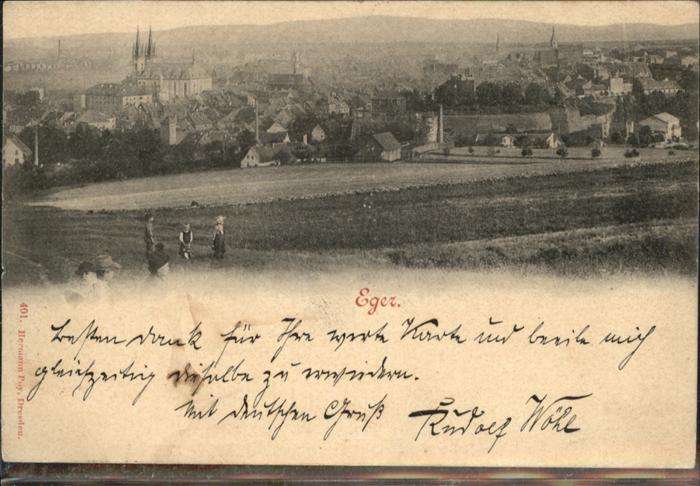 Eger.
besten dank für Ihre werte Karte und beeile mich
gleichzeitig dieselbe zu erwiedern.
Mit deutschen Gruß Rudolf Wöhl
401. Hermann Poy, Dresden.